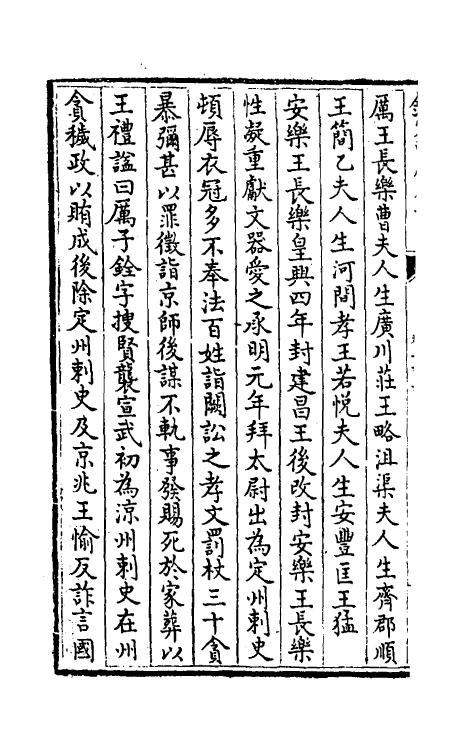 厲王長樂曹夫人生廣川莊王略沮渠夫人生齊郡順
王簡乙夫人生河間孝王若悅夫人生安豐匡王猛
安樂王長樂皇興四年封建昌王後改封安樂王長樂
性凝重獻文器愛之承明元年拜太尉出為定州刺史
頓辱衣冠多不奉法百姓詣闕訟之孝文罰杖三十貪
暴彌甚以罪徵詣京師後謀不軌事發賜死於家葬以
王禮諡曰厲子銓字搜賢襲宣武初為涼州刺史在州
貪穢政以賄成後除定州刺史及京兆王愉反詐言國